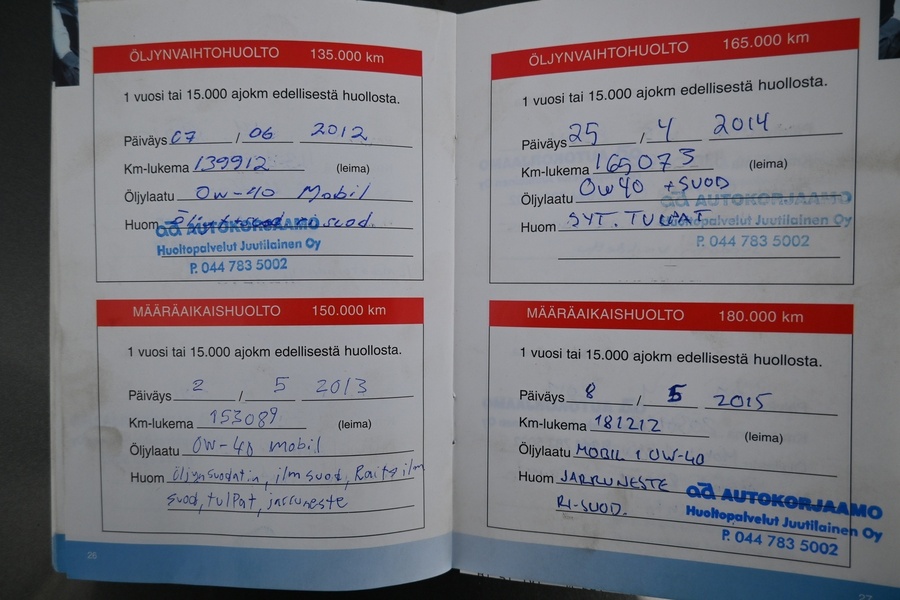 ÖLJYNVAIHTOHUOLTO 135.000 km
1 vuosi tai 15.000 ajokm edellisestä huollosta.
Päiväys 07 / 06 2012
Km-lukema 139912 (leima)
Öljylaatu 0W-40 Mobil
Huom
ad AUTOKORJAAMO
Huoltopalvelut Juutilainen Oy
P. 044 783 5002
MÄÄRÄAIKAISHUOLTO 150.000 km
1 vuosi tai 15.000 ajokm edellisestä huollosta.
Päiväys 2 / 5 2013
Km-lukema 153089 (leima)
Öljylaatu 0W-40 mobil
Huom öljynsuodatin, ilmsuod, Raitisilm
suod, tulPat, jarruneste
26
ÖLJYNVAIHTOHUOLTO 165.000 km
1 vuosi tai 15.000 ajokm edellisestä huollosta.
Päiväys 25 / 4 2014
Km-lukema 165073 (leima)
Öljylaatu 0W40 +SUOD
Huom SYT. TULPAT
ad AUTOKORJAAMO
Huoltopalvelut Juutilainen Oy
P. 044 783 5002
MÄÄRÄAIKAISHUOLTO 180.000 km
1 vuosi tai 15.000 ajokm edellisestä huollosta.
Päiväys 8 / 5 2015
Km-lukema 181212 (leima)
Öljylaatu MOBIL 1 0W-40
Huom JARRUNESTE
RI-SUOD.
ad AUTOKORJAAMO
Huoltopalvelut Juutilainen Oy
P. 044 783 5002
27